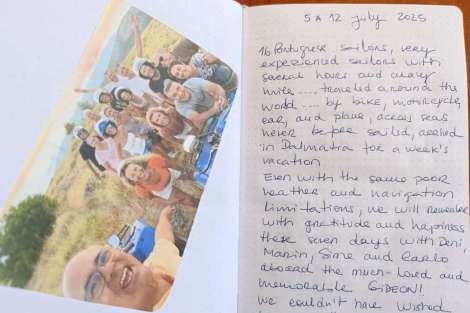 5 A 12 July 2025
16 Portuguese sailors, very
experienced sailors with
several hours and many
miles ..... traveled around the
world .... by bike, motorcycle,
car, and plane, across seas
never before sailed, arrived
in Dalmatia for a week's
vacation
Even with the same poor
weather and navigation
limitations, we will remember
with gratitude and happiness
these seven days with Deni,
Marin, Sime and Carlo
aboard the much-loved and
memorable GIDEON!
We couldn't have wished